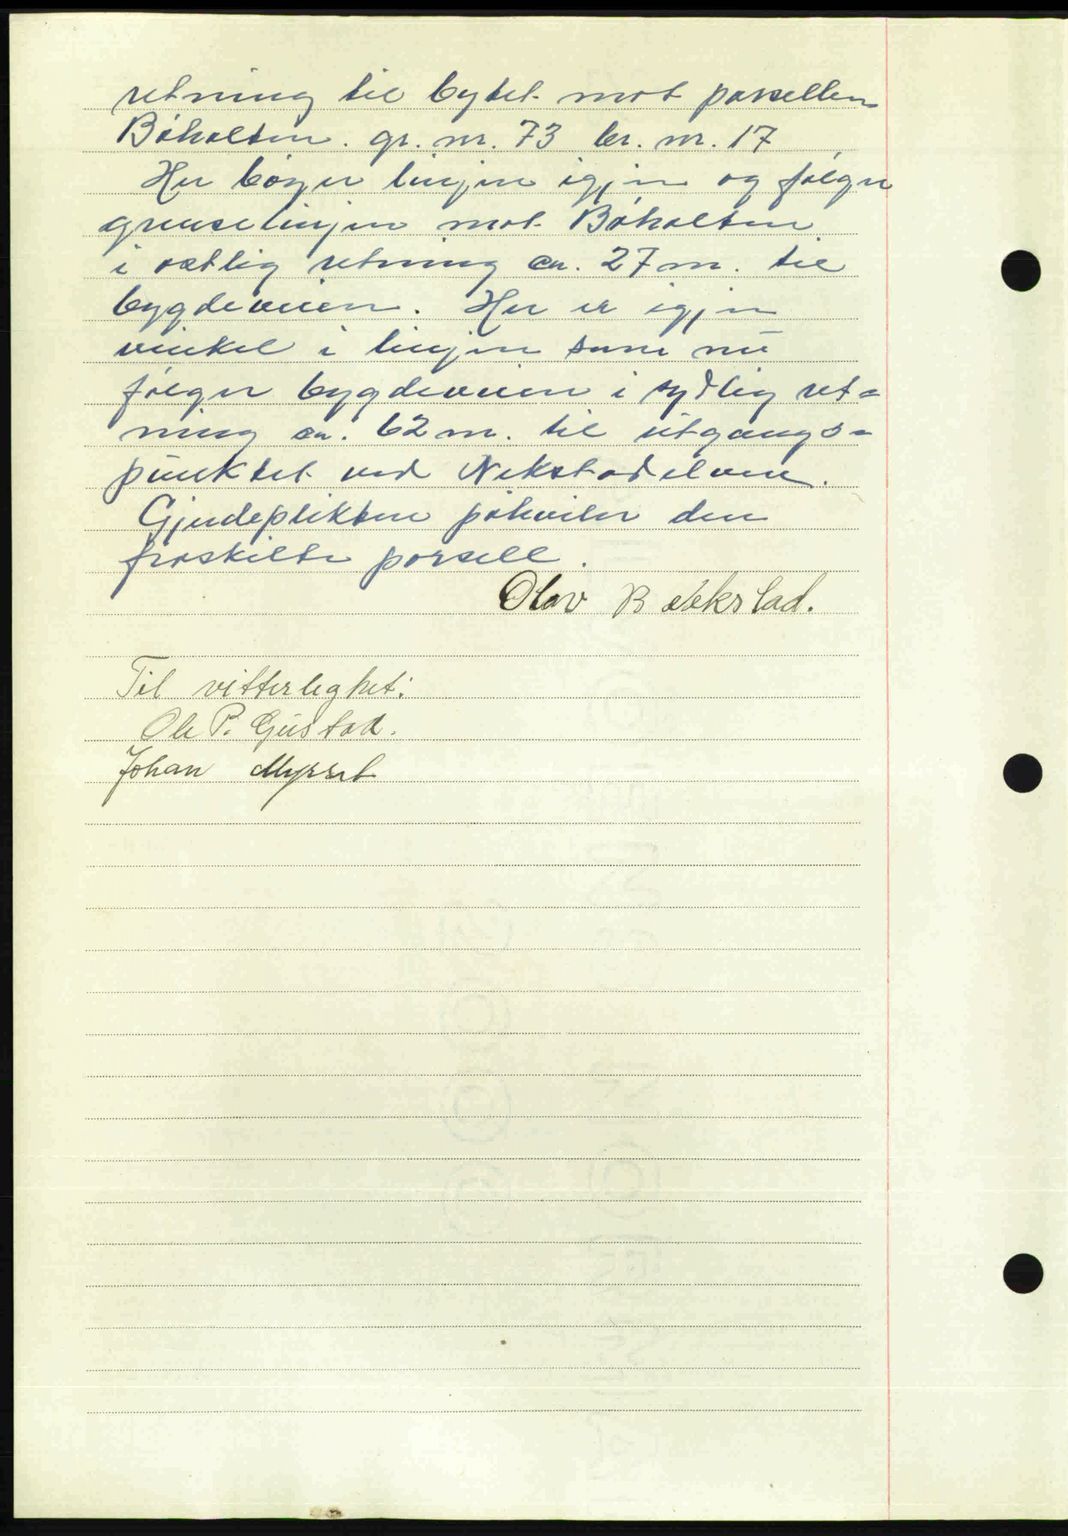 retning til bytet mot parsellen
Bøholten. gr. nr. 73 br. nr. 17
Her bøyer linjen igjen og følger
grenselinjen mot Bøholten
i østlig retning ca. 27 m. til
bygdeveien. Her er igjen
vinkel i linjen som nu
følger bygdeveien i sydlig ret=
ning ca. 62 m. til utgangs=
punktet ved Nekstadelven.
Gjerdeplikten påhviler den
fraskilte parsell.
Olav Bækstad.
Til vitterlighet:
Ole P. Gustad.
Johan Myrset